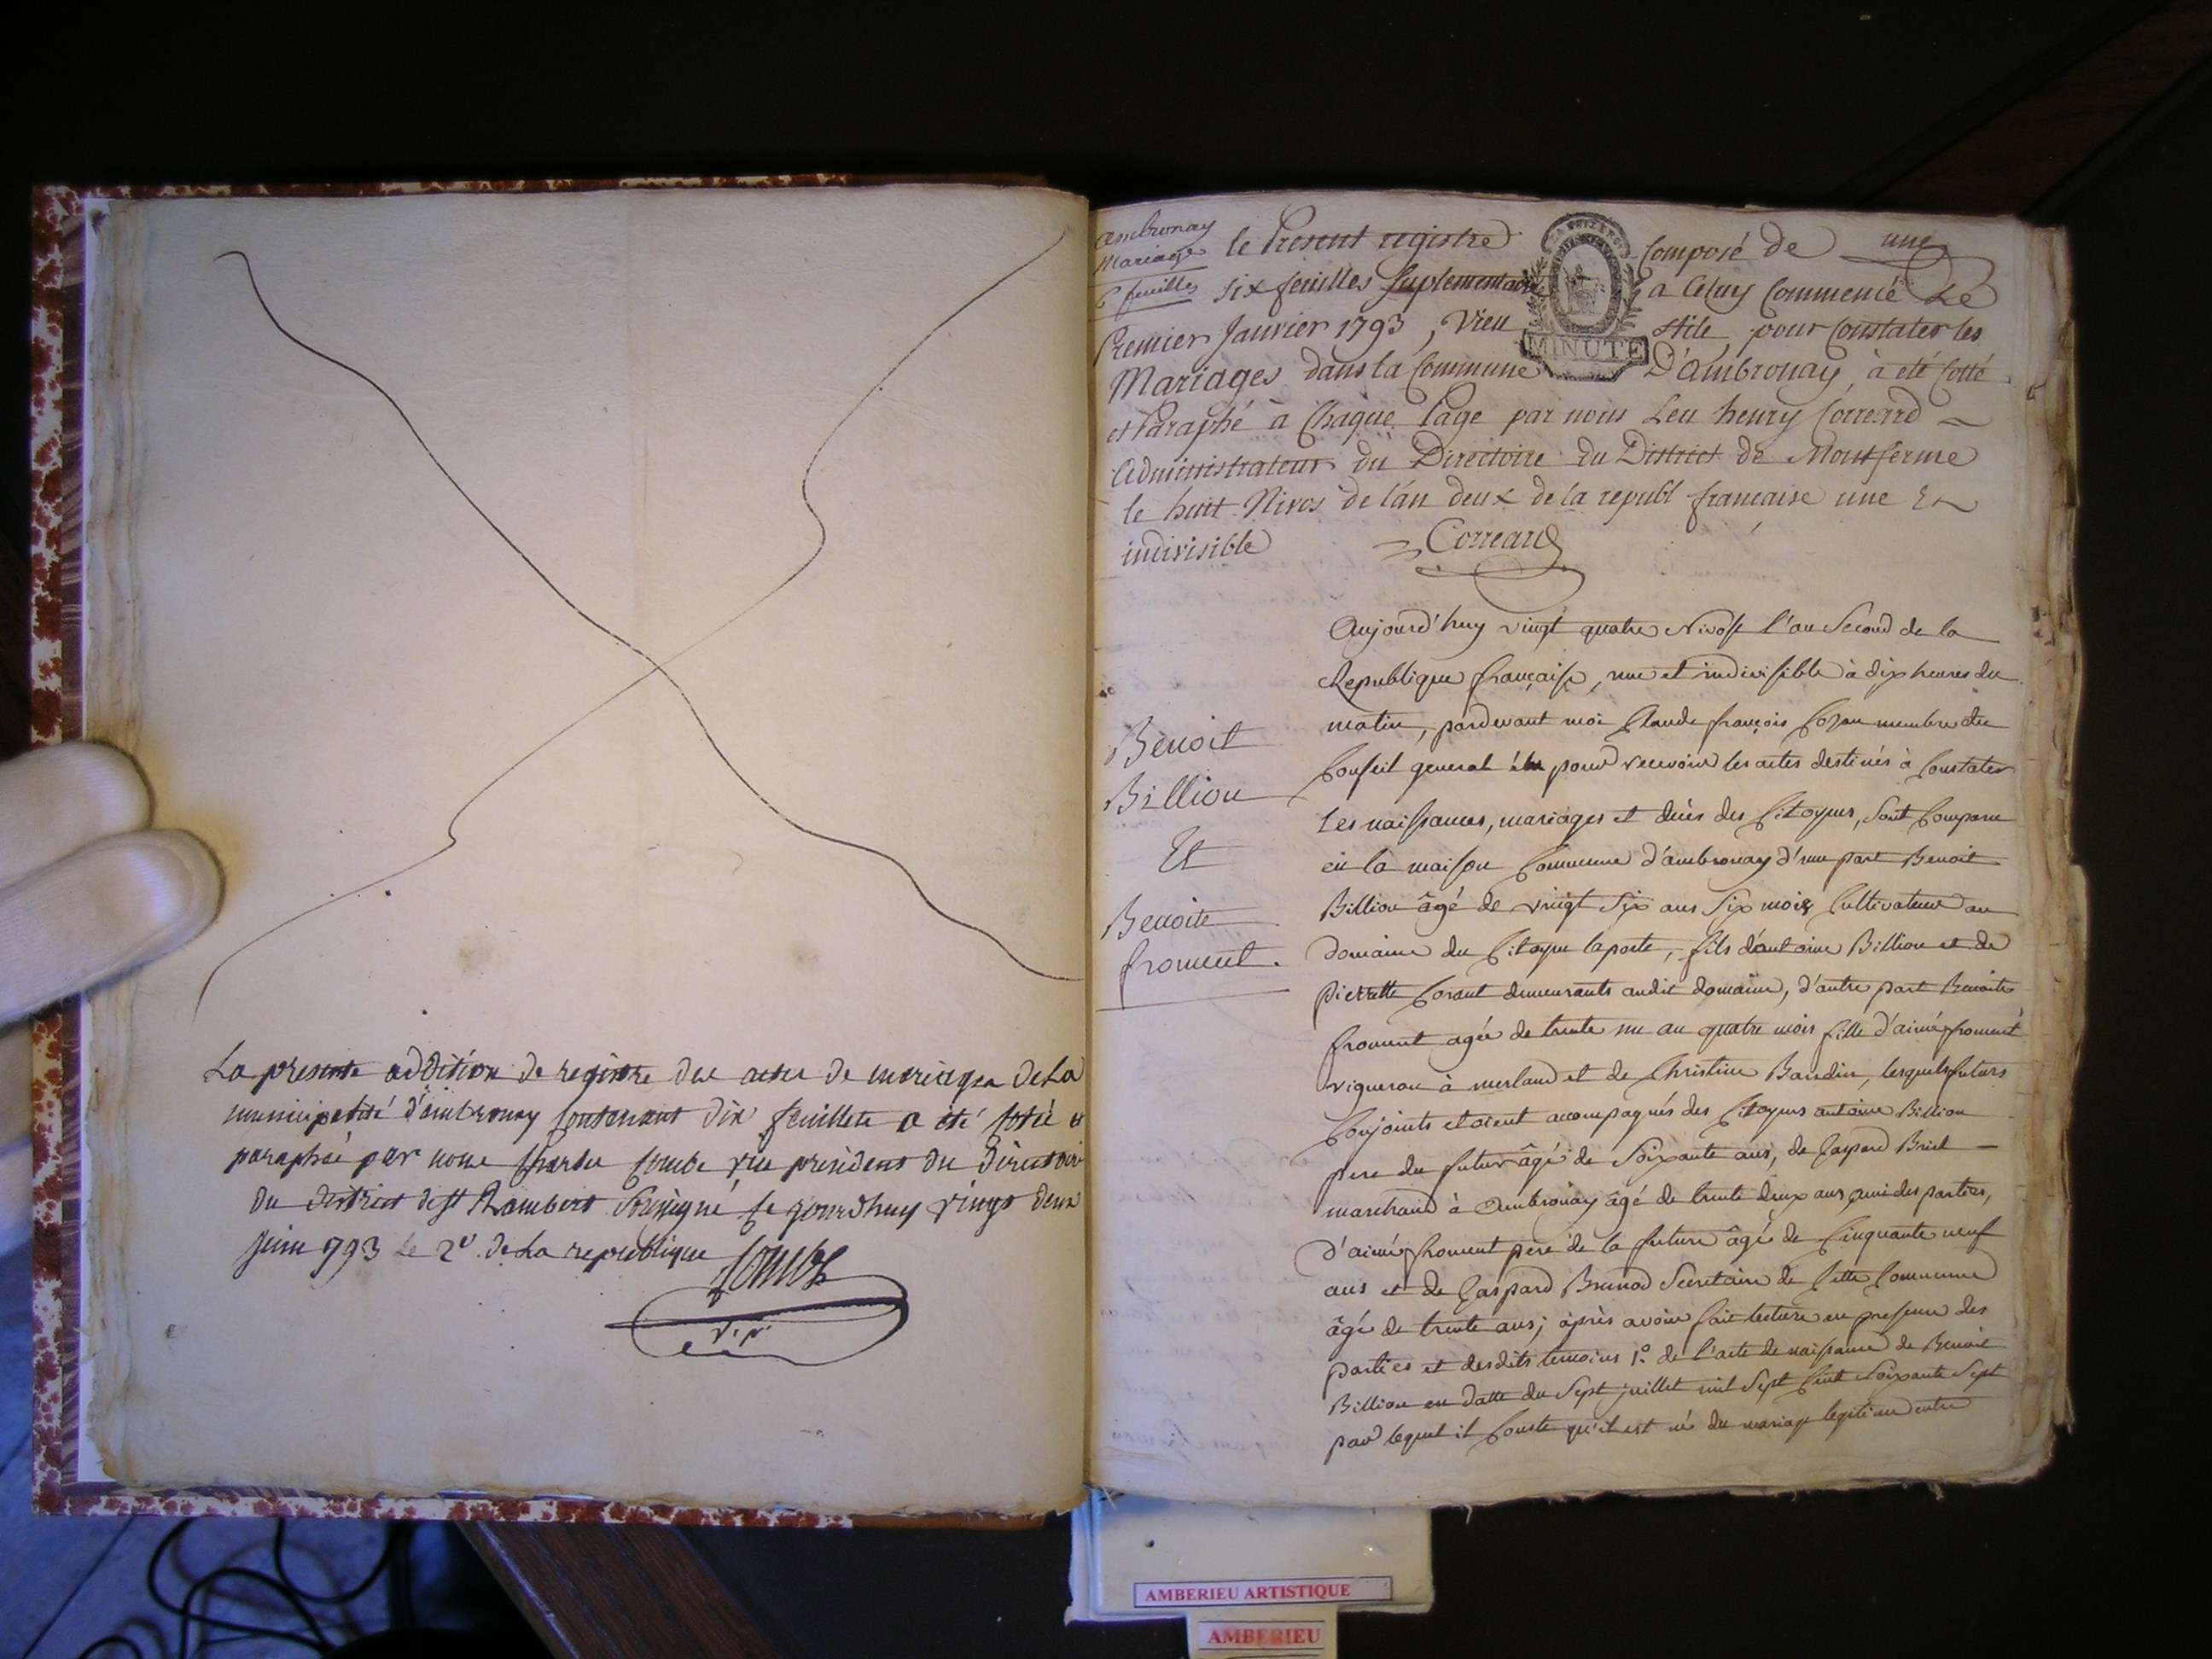 La presente addition de registre des actes de mariages de La
municipalité d'ambronay Contenant dix feuillets a été cotée et
paraphée par nous Charles Combe vice president du directoire
du district de St Rambert Soussigné ce jourdhuy vingt deux
juin 793 le 2e de La republique Combe
v. p.
ambronay
mariage
6 feuilles
le Present registre Composé de une
six feuilles suplementaire a Celuy Commencé Le
Premier Janvier 1793, vieu stile, pour Constater les
MINUTE
Mariages dans la Commune D'ambronay, à eté Cotté
et Paraphé à Chaque Page par nous Leu henry Correard
Administrateur du Directoire du District de Montferme
le huit Nivos de l'an deux de la republ francaise une Et
indivisible Correard
Benoit
Billion
Et
Benoite
froment.
Aujourd'huy vingt quatre Nivose l'an Second de la
Republique française, une et indivisible à dix heures du
matin, pardevant moi Claude françois membre du
Conseil general élu pour recevoir les actes destinés à Constater
Les naissances, mariages et décès des Citoyens, sont Comparu
en la maison Commune d'ambronay d'une part Benoit
Billion âgé de vingt Six ans Six mois Cultivateur au
domaine du Citoyen laporte, fils d'antoine Billion et de
pierrette demeurants audit domaine, d'autre part Benoite
froment agée de trente un an quatre mois fille d'aimé froment
vigneron à merland et de Christine Baudin, lesquels futurs
Conjoints etoient accompagnés des Citoyens antoine Billion
pere du futur âgé de Soixante ans, de Gaspard
marchand à Ambronay âgé de trente deux ans, ami des parties,
d'aimé froment pere de la future âgé de Cinquante neuf
ans et de Gaspard Brunod Secretaire de Cette Commune
âgé de trente ans; après avoir fait lecture en presence des
parties et desdits temoins 1.° de l'acte de naissance de Benoit
Billion en datte du Sept juillet mil Sept Cent Soixante Sept
par lequel il Conste qu'il est né du mariage legitime entre
AMBERIEU ARTISTIQUE
AMBERIEU